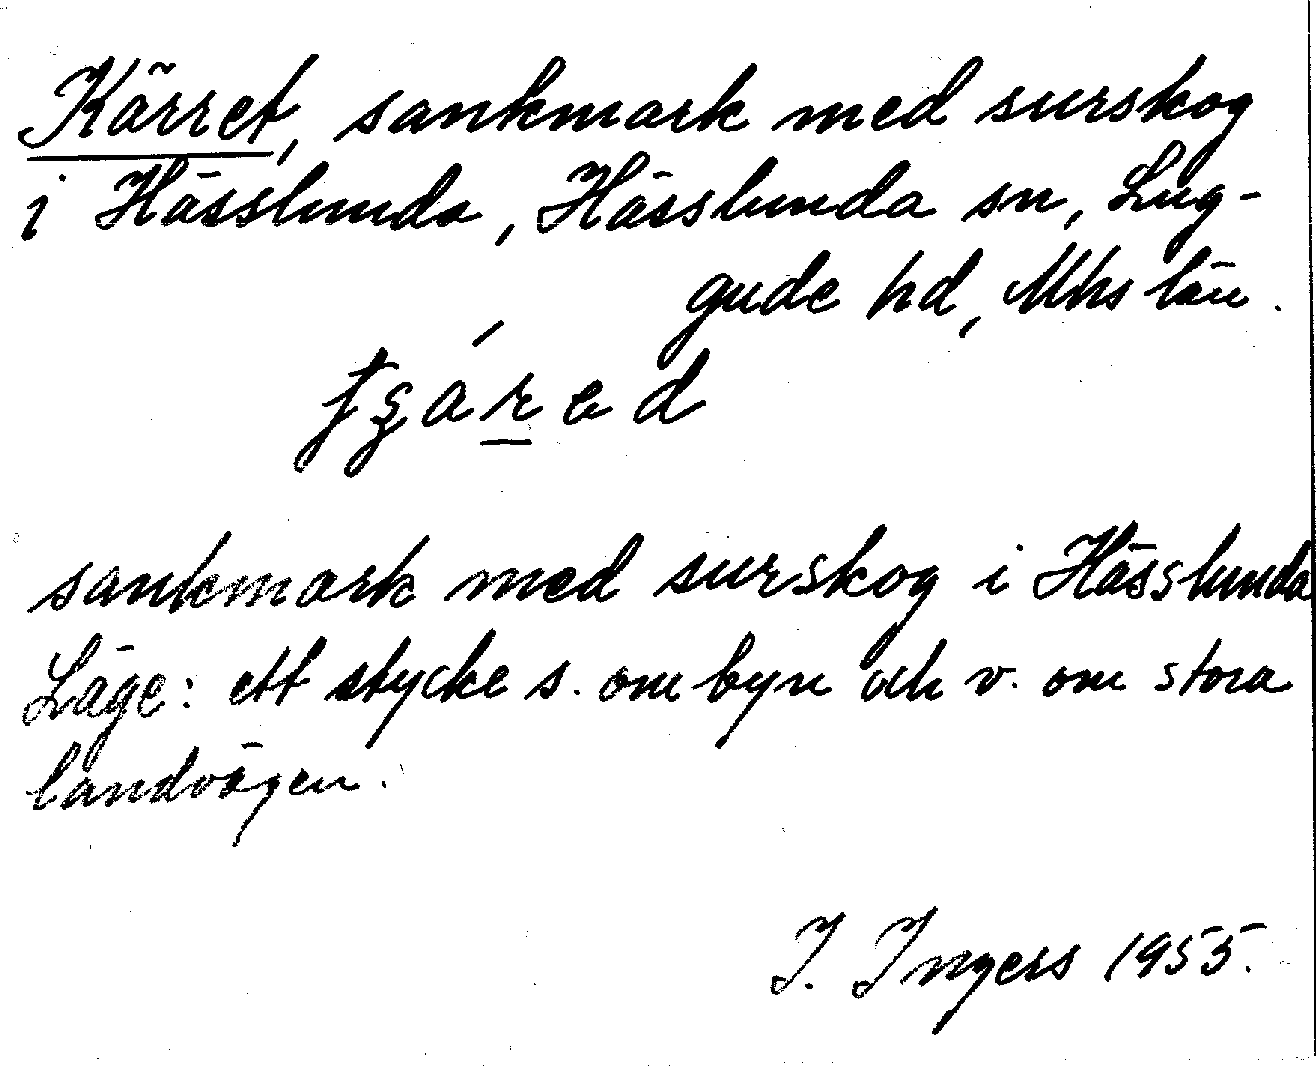 Kärret, sankmark med surskog
i Hässlunda, Hässlunda sn, Lug-
gude hd, Mhs län.
sankmark med surskog i Hässlunda
Läge: ett stycke s. om byn och v. om stora
landvägen.
I. Ingers 1955.